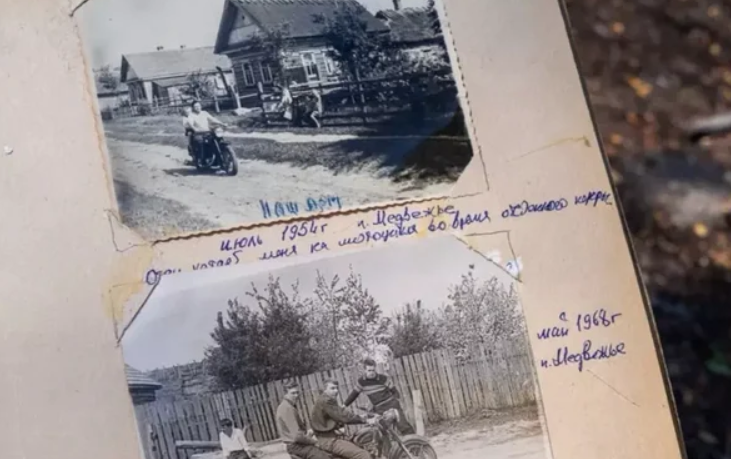 НАШ ДОМ
июль 1954г п. Медвежье
Отец катает меня на мотоцикле во время очередного
май 1968г
п. Медвежье